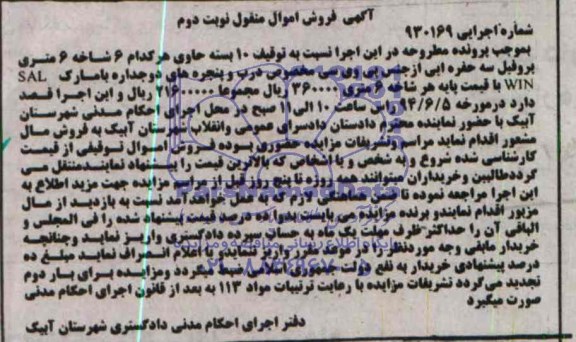 آگهی فروش اموال منقول نوبت دوم
شماره اجرایی ۹۳۰۱۶۹
بموجب پرونده مطروحه در این اجرا نسبت به توقیف ۱۰ بسته حاوی هرکدام ۶ شاخه ۶ متری
پروفیل سه حفره ایی ازجنس پی وی سی مخصوص درب و پنجره های دوجداره بامارک SAL
WIN با قیمت پایه هر شاخه ۶ متری ریال مجموعا ریال و این اجرا قصد
دارد درمورخه ۹۴/۶/۵ راس ساعت ۱۰ الی ۱۱ صبح در محل اجرای احکام مدنی شهرستان
آبیک با حضور نماینده محترم دادستان دادسرای عمومی وانقلاب شهرستان آبیک به فروش مال
مشعور اقدام نماید مراسم وتشریفات مزایده حضوری بوده و فروش اموال توقیفی از قیمت
کارشناسی شده شروع و به شخص و یا اشخاص که بالاترین قیمت را پیشنهاد نمایندمنتقل می
گرددطالبین وخریداران میتوانند همه روزه تا پنج روز قبل از مراسم مزایده جهت مزید اطلاع به
این اجرا مراجعه نموده تا ضمن هماهنگی لازم که به عمل خواهدآمد نست به بازدید از مال
مزبور اقدام نمایندو برنده مزایده می بایست بدوا ده درصد قیمت پیشنهاد شده را فی المجلس و
الباقی آن را حداکثر ظرف مهلت یک ماه به حساب سپرده دادگستری واریز نماید وچنانچه
خریدار مابقی وجه موردنظر را در موعد مقرر واریز ننمایدو یا اعلام انصراف نماید مبلغ ده
درصد پیشنهادی خریدار به نفع دولت جمهوری اسلامی ضبط میگردد ومزایده برای بار دوم
تجدید می گردد تشریفات مزایده با رعایت ترتیبات مواد ۱۱۳ به بعد از قانون اجرای احکام مدنی
صورت میگیرد
دفتر اجرای احکام مدنی دادگستری شهرستان آبیک